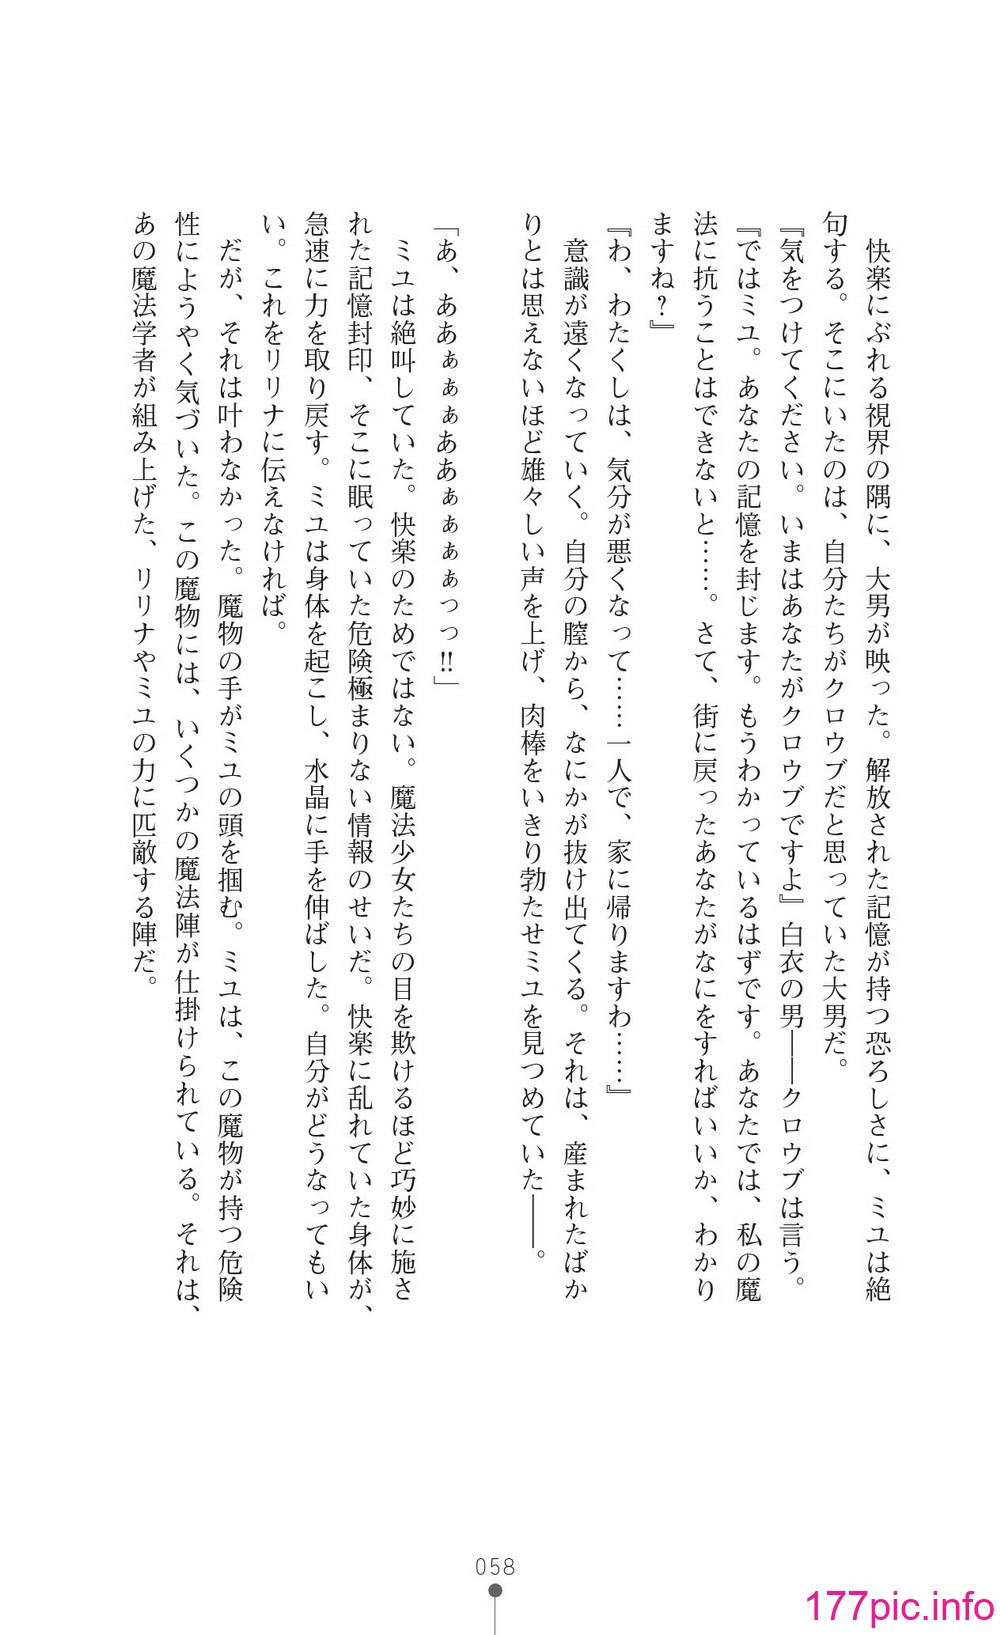 快楽にぶれる視界の隅に、大男が映った。解放された記憶が持つ恐ろしさに、ミユは絶
句する。そこにいたのは、自分たちがクロウブだと思っていた大男だ。
『気をつけてください。いまはあなたがクロウブですよ』白衣の男――クロウブは言う。
『ではミユ。あなたの記憶を封じます。もうわかっているはずです。あなたでは、私の魔
法に抗うことはできないと……。さて、街に戻ったあなたがなにをすればいいか、わかり
ますね?』
『わ、わたくしは、気分が悪くなって……一人で、家に帰りますわ……』
意識が遠くなっていく。自分の膣から、なにかが抜け出てくる。それは、産まれたばか
りとは思えないほど雄々しい声を上げ、肉棒をいきり勃たせミユを見つめていた――。
「あ、ああぁぁぁああぁぁぁぁっっ!!」
ミユは絶叫していた。快楽のためではない。魔法少女たちの目を欺けるほど巧妙に施さ
れた記憶封印、そこに眠っていた危険極まりない情報のせいだ。快楽に乱れていた身体が、
急速に力を取り戻す。ミユは身体を起こし、水晶に手を伸ばした。自分がどうなってもい
い。これをリリナに伝えなければ。
だが、それは叶わなかった。魔物の手がミユの頭を掴む。ミユは、この魔物が持つ危険
性にようやく気づいた。この魔物には、いくつかの魔法陣が仕掛けられている。それは、
あの魔法学者が組み上げた、リリナやミユの力に匹敵する陣だ。
058
177pic.info